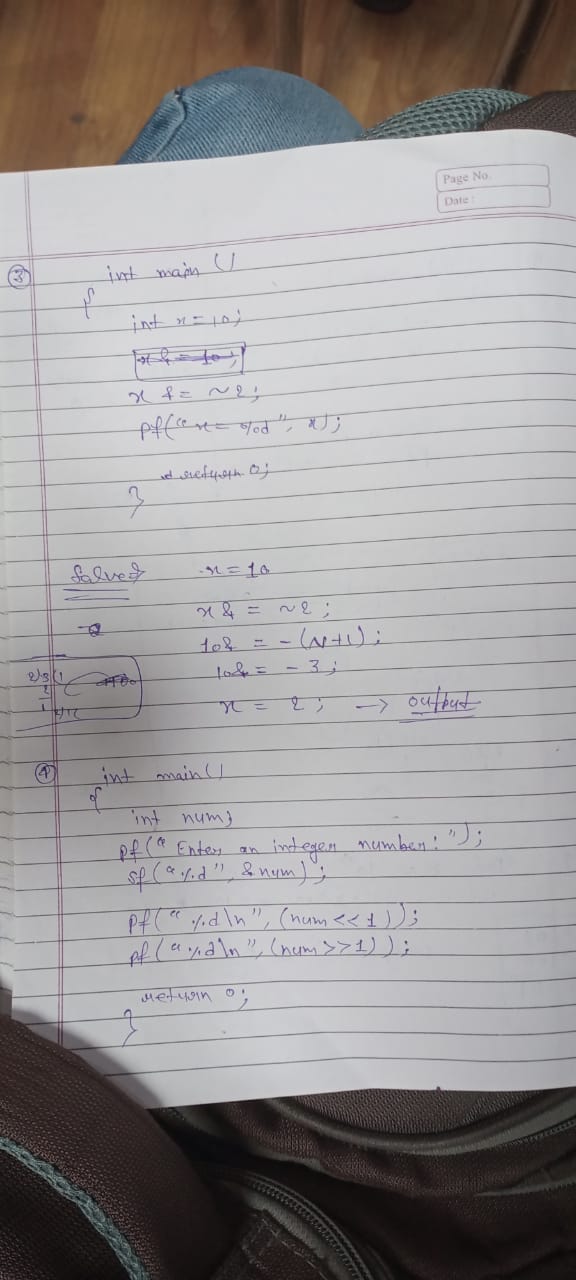 Page No.
Date :
③ int main ()
{
int x = 10;
x & = 10;
x & = ~2;
pf("x = %d", x);
return 0;
}
Solved x = 10
x & = ~2;
10& = -(N+1);
10& = -3;
x = 2; → output
④ int main()
{
int num;
pf("Enter an integer number: ");
sf("%d", &num);
pf("%d\n", (num<<1));
pf("%d\n", (num>>1));
return 0;
}